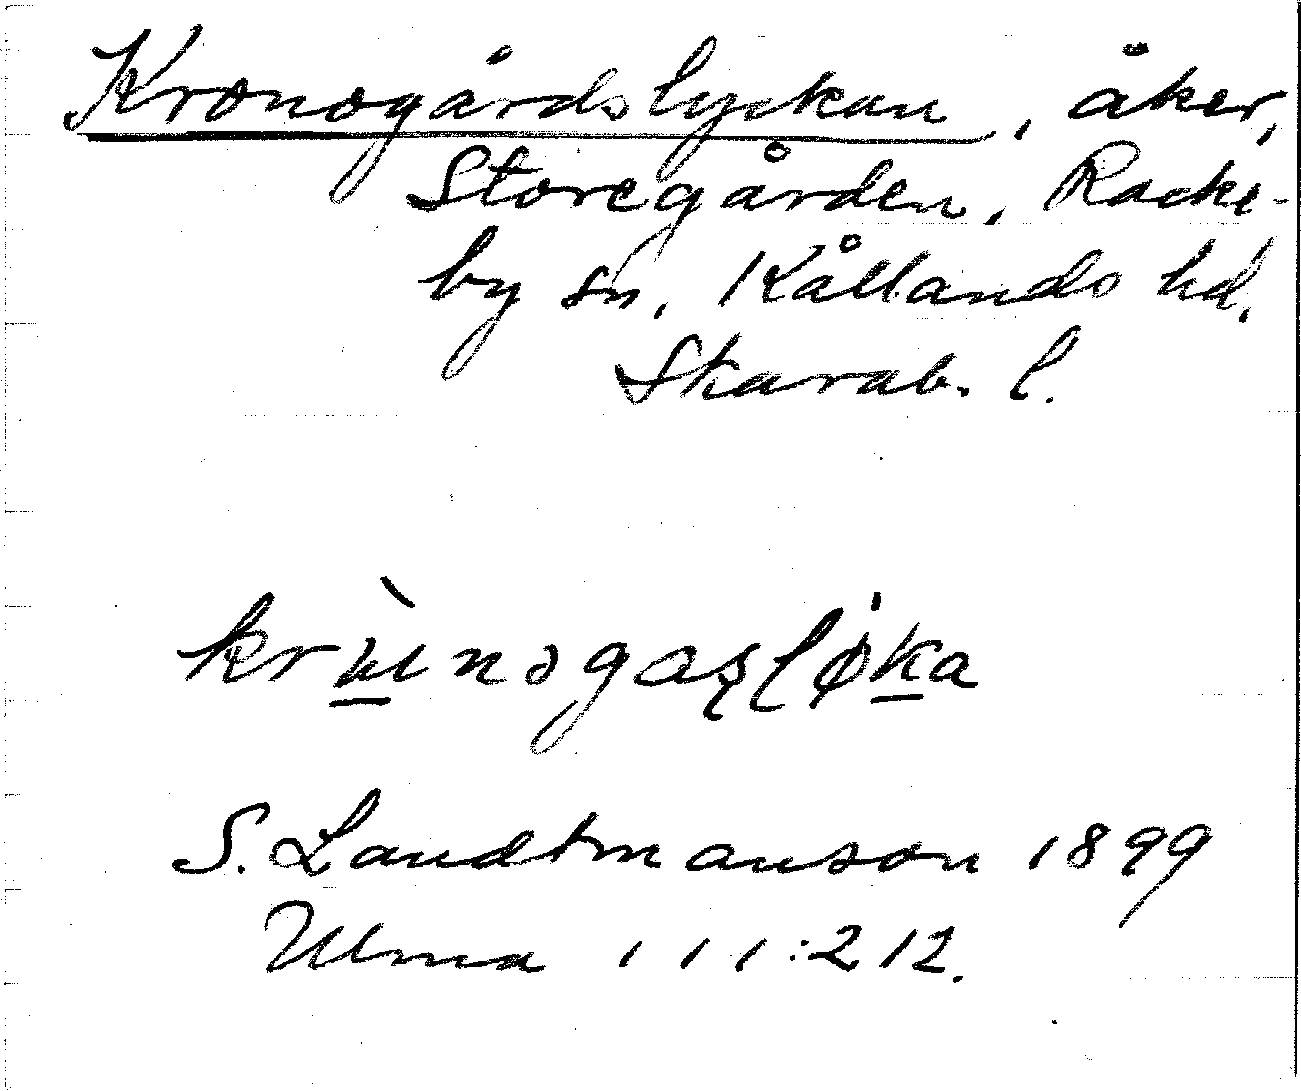 Kronogårdslyckan, åker,
Storegården, Racke-
by sn, Kållands hd,
Skarab. l.
krùnogasløka
S. Landtmanson 1899
Ulma 111:212.